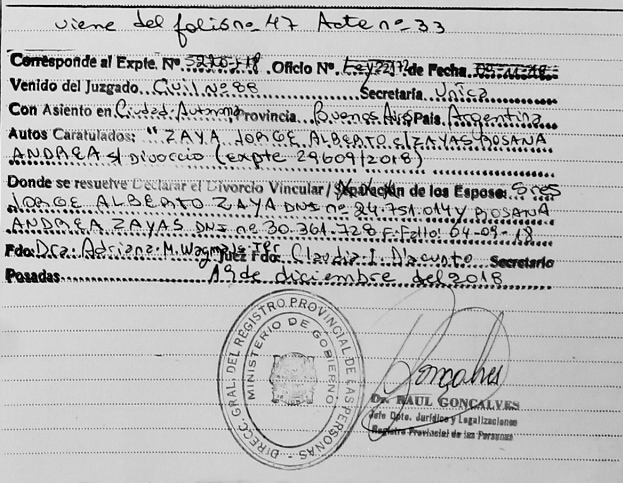 viene del folio nº 47 Acta nº 33
Corresponde al Expte. Nº 5270-I-18 Oficio Nº Ley 22172 de Fecha 09-11-18
Venido del Juzgado Civil Nº 88 Secretaría Unica
Con Asiento en Ciudad Autonoma Provincia Buenos Aires País Argentina
Autos Caratulados: "ZAYA JORGE ALBERTO c/ ZAYAS ROSANA
ANDREA s/ Divorcio (expte 29609/2018)
Donde se resuelve Declarar el Divorcio Vincular / Separación de los Esposos: Sres
JORGE ALBERTO ZAYA DNI nº 24.751.014 y ROSANA
ANDREA ZAYAS DNI nº 30.361.728 F. Fallo: 04-09-18
Fdo: Dra: Adriana M. Wagmaister Juez Fdo: Claudia I. D'acunto Secretario
Posadas 19 de diciembre del 2018
DIRECC. GRAL. DEL REGISTRO PROVINCIAL DE LAS PERSONAS
MINISTERIO DE GOBIERNO
Gonçalves
Dr. RAUL GONCALVES
Jefe Dpto. Jurídico y Legalizaciones
Registro Provincial de las Personas